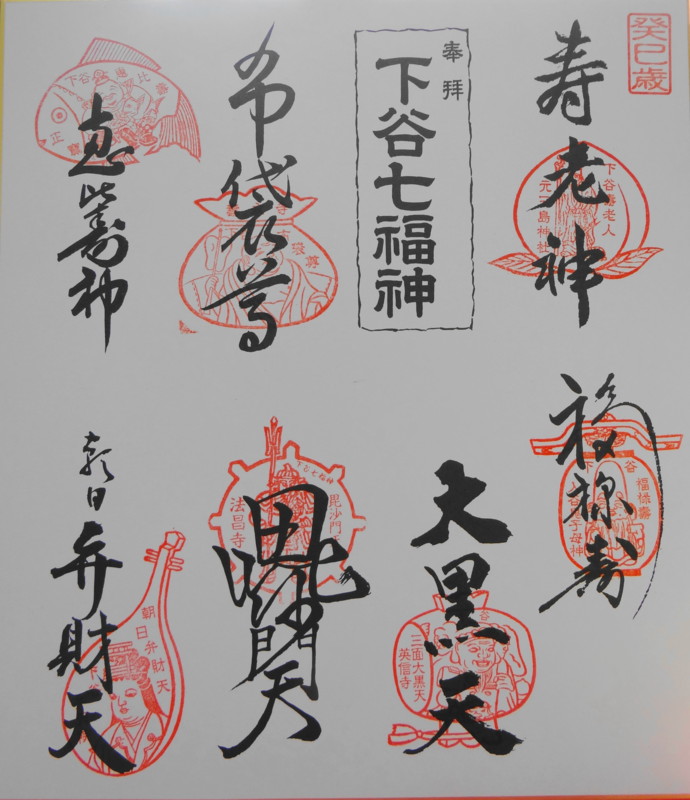 癸巳歳
寿老神
下谷寿老人
元三島神社
奉拝
下谷七福神
布袋尊
恵比寿神
下谷
正寶
福禄寿
下谷
福禄壽
子母神
大黒天
三面大黒天
英信寺
毘沙門天
下谷七福神
毘沙門天
法昌寺
朝日
弁財天
朝日弁財天